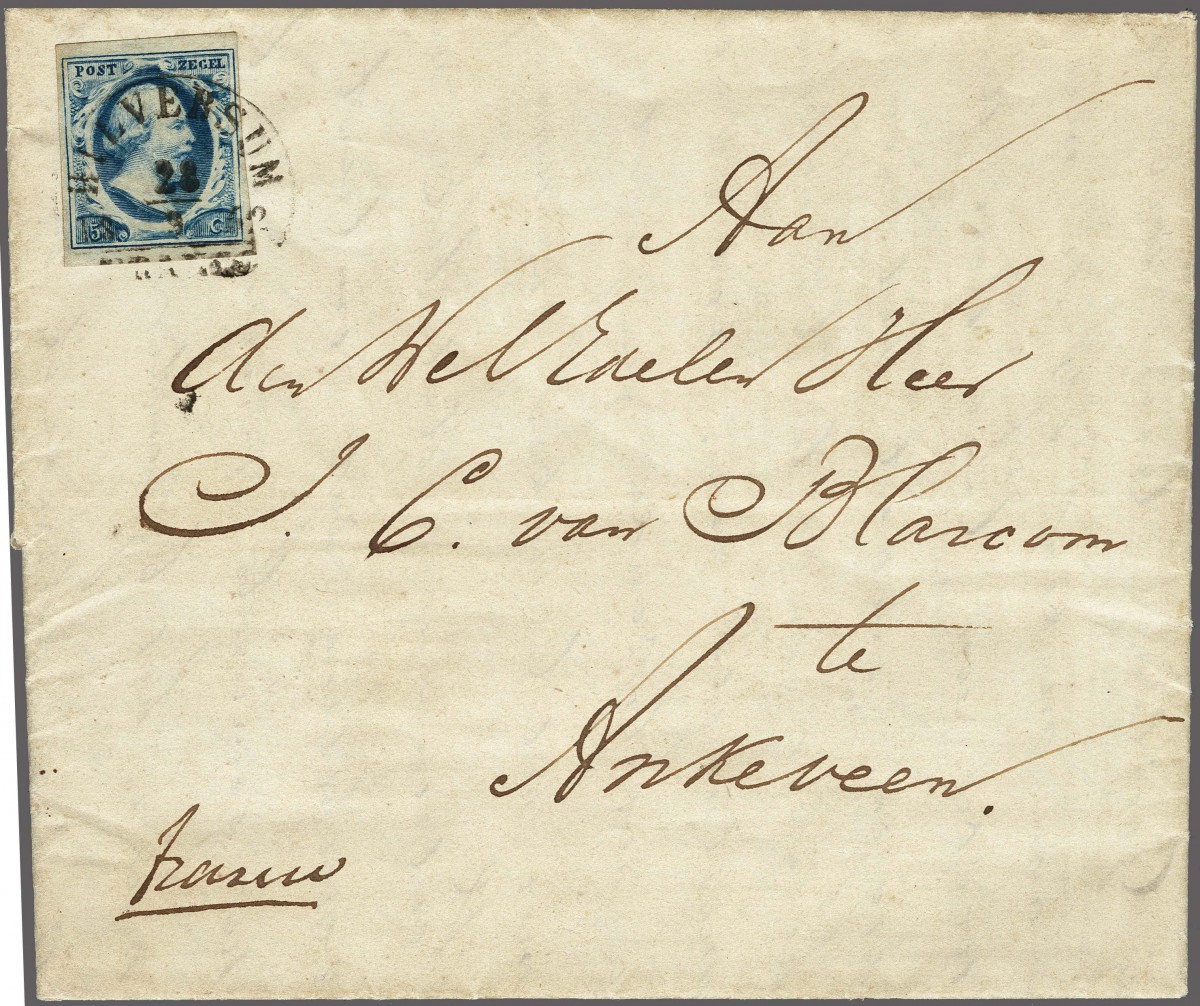 POST ZEGEL
HILVERSUM
28
3
5 C
FRANCO
Aan
den WelEdelen Heer
J. C. van Blarcom
te
Ankeveen.
franco